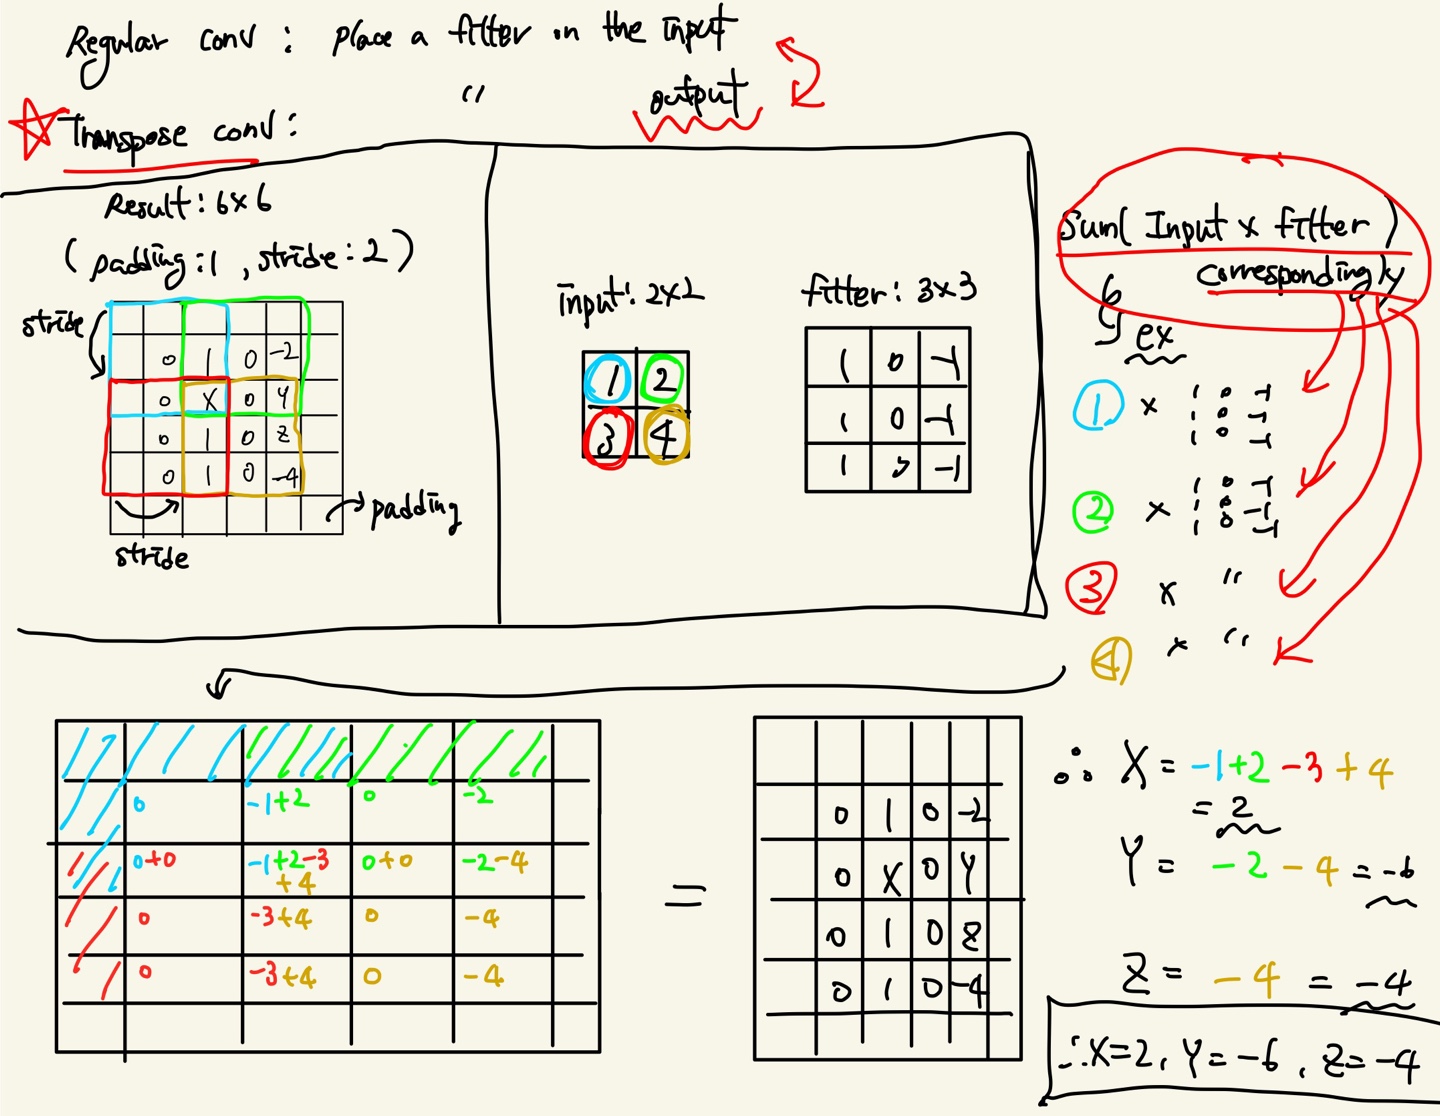 Regular conv : place a filter on the input
Transpose conv : " output
Result : 6x6
(padding : 1 , stride : 2)
stride
0 1 0 -2
0 X 0 Y
0 1 0 Z
0 1 0 -4
stride
padding
input : 2x2
1 2
3 4
filter : 3x3
1 0 -1
1 0 -1
1 0 -1
Sum( Input x filter )
correspondingly
ex
1 x 1 0 -1
1 0 -1
1 0 -1
2 x 1 0 -1
1 0 -1
1 0 -1
3 x "
4 x "
0 -1+2 0 -2
0+0 -1+2-3+4 0+0 -2-4
0 -3+4 0 -4
0 -3+4 0 -4
=
0 1 0 -2
0 X 0 Y
0 1 0 Z
0 1 0 -4
∴ X = -1+2-3+4
= 2
Y = -2-4 = -6
Z = -4 = -4
∴ X=2, Y=-6, Z=-4